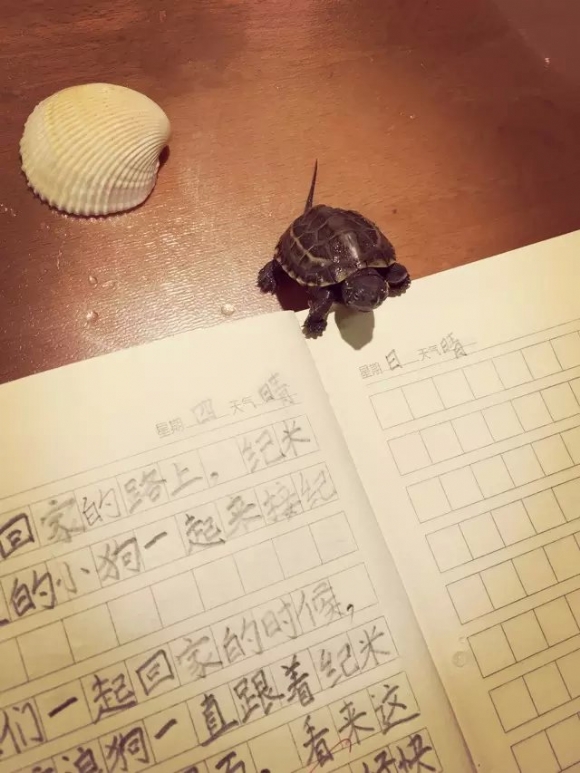 星期 四 天气 晴
回家的路上，纪米
的小狗一起来接纪
们一起回家的时候，
浪狗一直跟着纪米
看来这
好快
星期 日 天气 晴